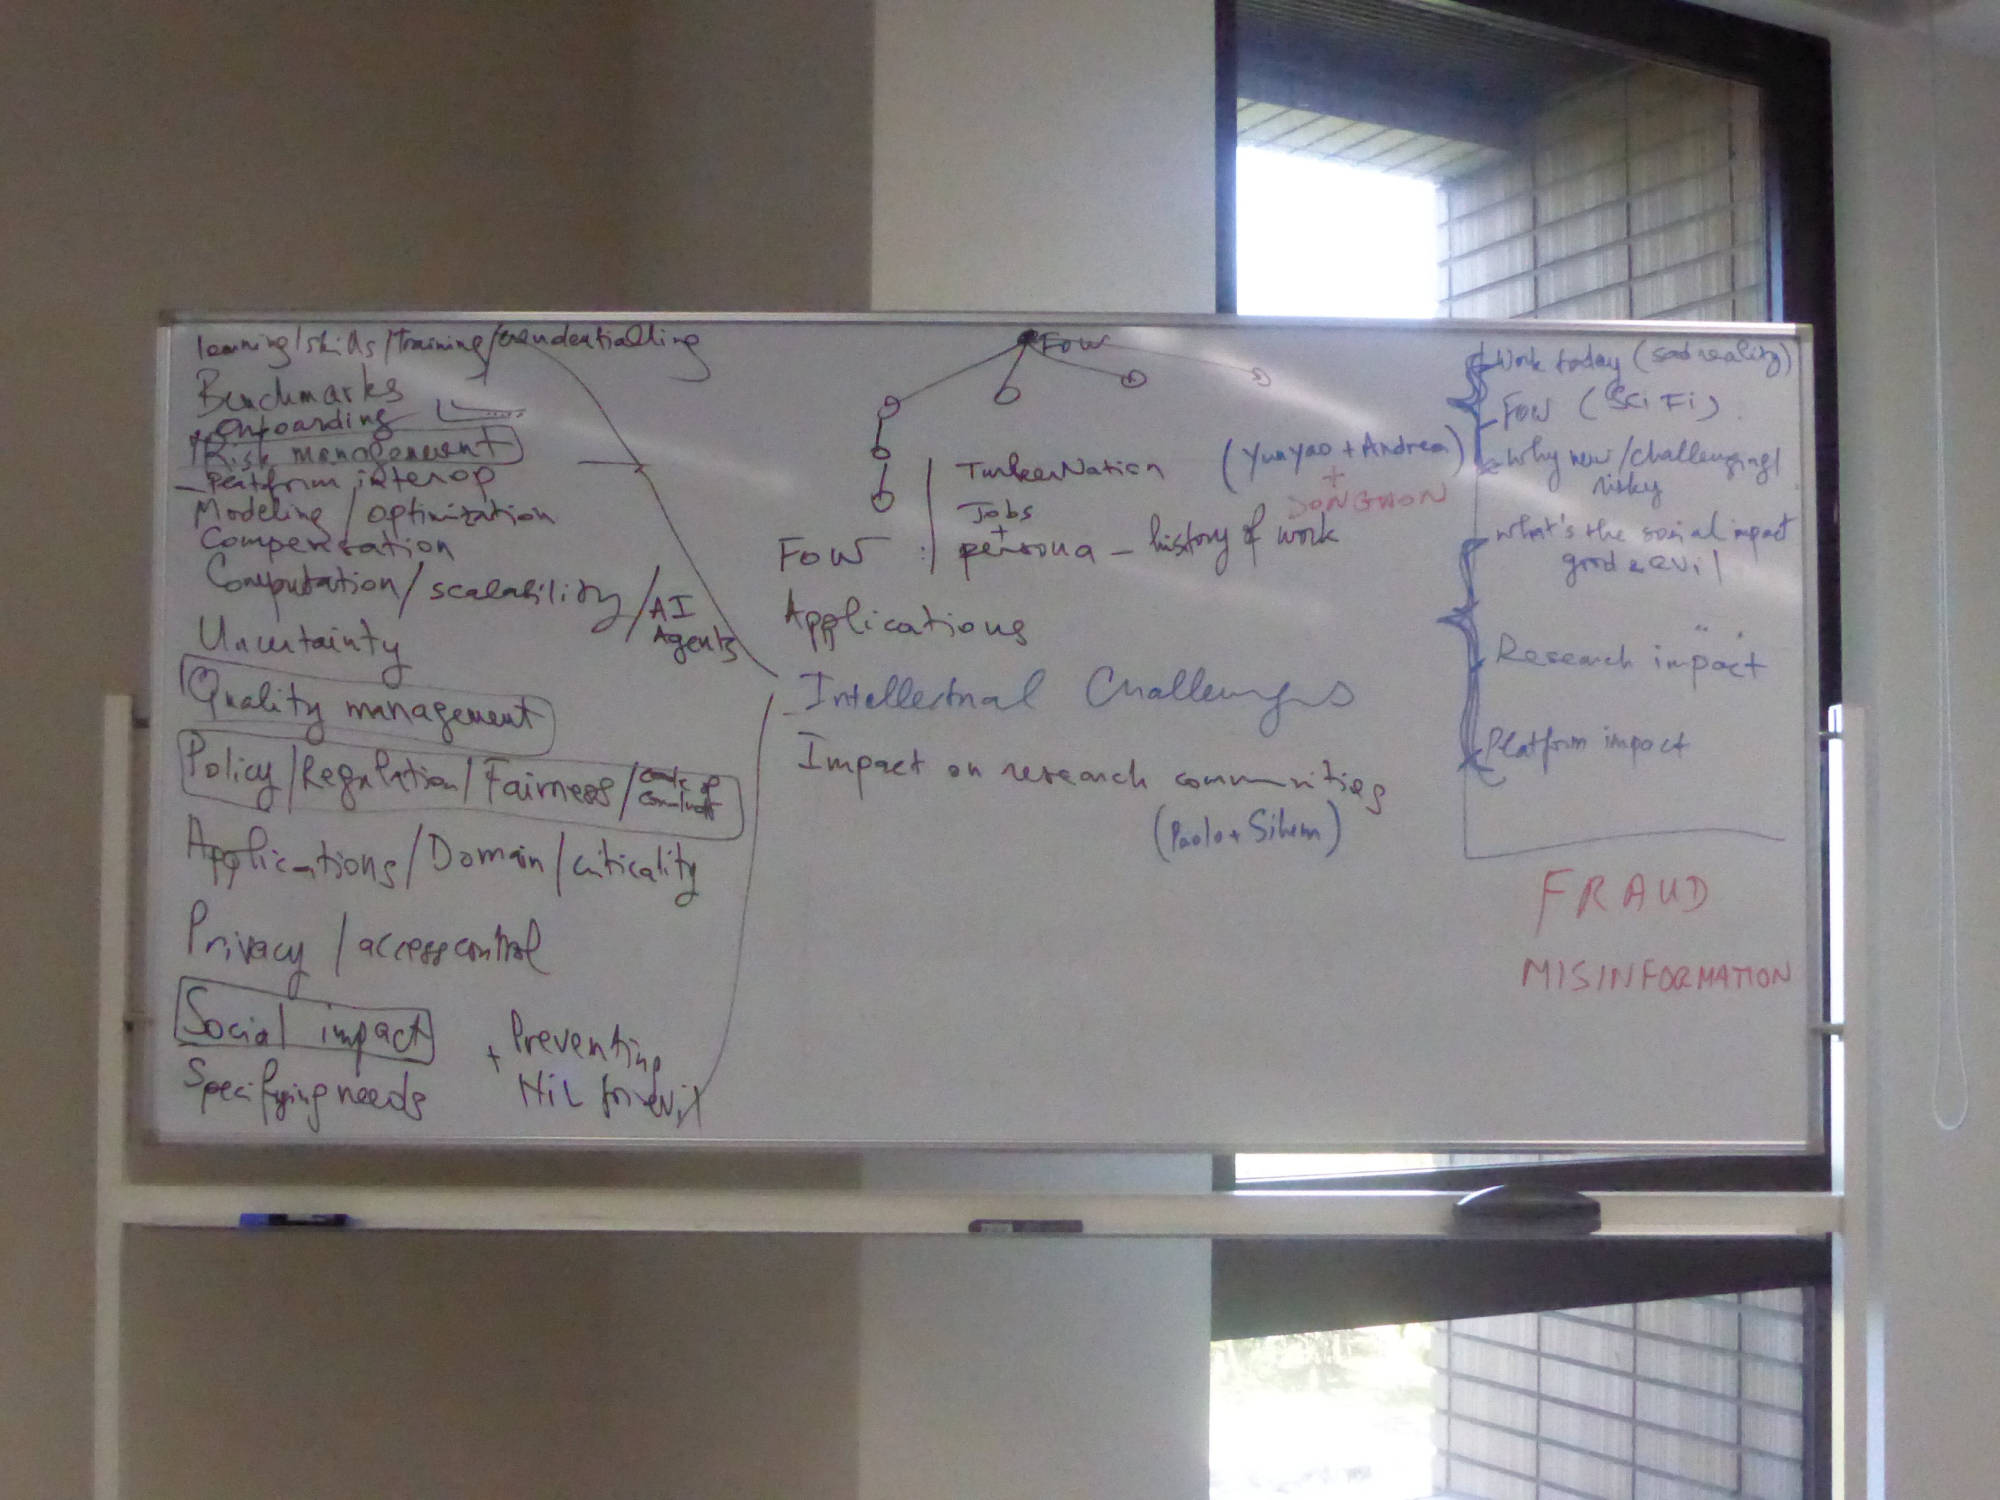 learning/skills/training/creudentialling
Benchmarks
+ onboarding
Risk management
- platform interop
Modeling / optimization
Compensation
Computation / scalability / AI Agents
Uncertainty
Quality management
Policy / Regulation / Fairness / code of conduct
Applications / Domain / criticality
Privacy / access control
Social impact
Specifying needs
+ Preventing
HiL for evil
FOW
TurkerNation (Yunyao + Andrea)
+ DONGWON
Jobs
+
FOW : persona - history of work
Applications
Intellectual Challenges
Impact on research communities
(Paolo + Sihem)
Work today (sad reality)
FOW (SciFi).
Why new/challenging/
risky
what's the social impact
good & evil
Research impact
Platform impact
FRAUD
MISINFORMATION